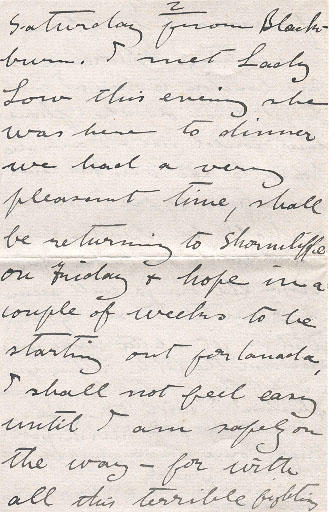 2
Saturday from Black-
burn. I met Lady
Low this evening she
was here to dinner
we had a very
pleasant time, shall
be returning to Shorncliffe
on Friday & hope in a
couple of weeks to be
starting out for Canada,
I shall not feel easy
until I am safely on
the way – for with
all this terrible fighting